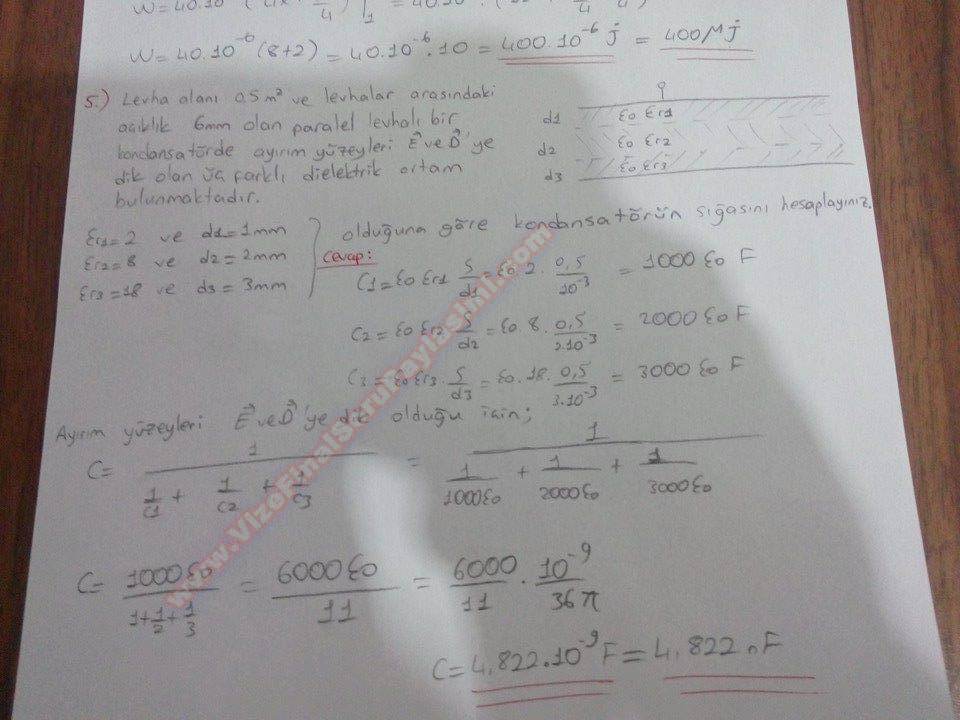 W = 40.10⁻⁶ (8+2) = 40.10⁻⁶.10 = 400.10⁻⁶ j = 400 Mj
5.) Levha alanı 0.5 m² ve levhalar arasındaki
açıklık 6mm olan paralel levhalı bir
kondansatörde ayırım yüzeyleri E⃗ ve D⃗'ye
dik olan üç farklı dielektrik ortam
bulunmaktadır.
d1 ε0 εr1
d2 ε0 εr2
d3 ε0 εr3
εr1=2 ve d1=1mm
εr2=8 ve d2=2mm
εr3=18 ve d3=3mm
olduğuna göre kondansatörün sığasını hesaplayınız.
Cevap:
C1=ε0 εr1 S/d1 = ε0 2 . 0,5/10⁻³ = 1000 ε0 F
C2=ε0 εr2 S/d2 = ε0. 8. 0,5/2.10⁻³ = 2000 ε0 F
C3=ε0 εr3. S/d3 = ε0. 18. 0,5/3.10⁻³ = 3000 ε0 F
Ayırım yüzeyleri E⃗ ve D⃗'ye dik olduğu için;
C= 1/(1/C1 + 1/C2 + 1/C3) = 1/(1/1000ε0 + 1/2000ε0 + 1/3000ε0)
C= 1000ε0/(1+1/2+1/3) = 6000ε0/11 = 6000/11 . 10⁻⁹/36π
C=4,822.10⁻⁹F = 4,822 nF
www.VizeFinalSoruPaylasimi.com